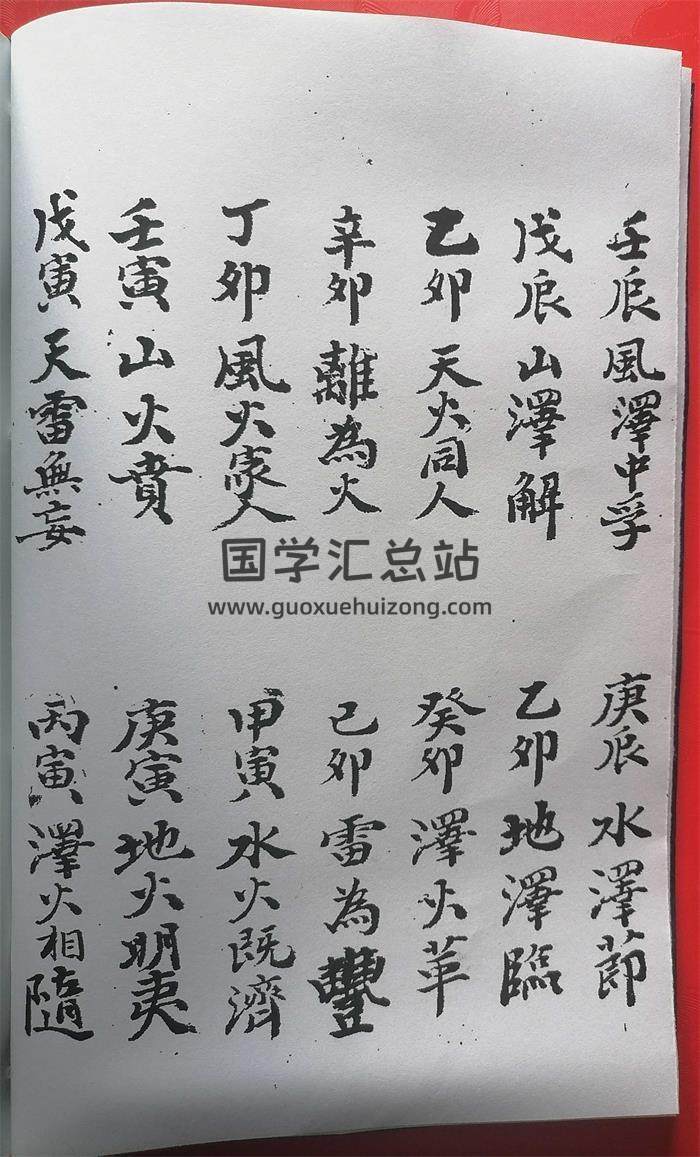 壬辰風澤中孚
庚辰水澤節
戊辰山澤解
乙卯地澤臨
乙卯天火同人
癸卯澤火革
辛卯離為火
己卯雷為豐
丁卯風火家人
甲寅水火既濟
壬寅山火賁
庚寅地火明夷
戊寅天雷無妄
丙寅澤火相隨
国学汇总站
www.guoxuehuizong.com